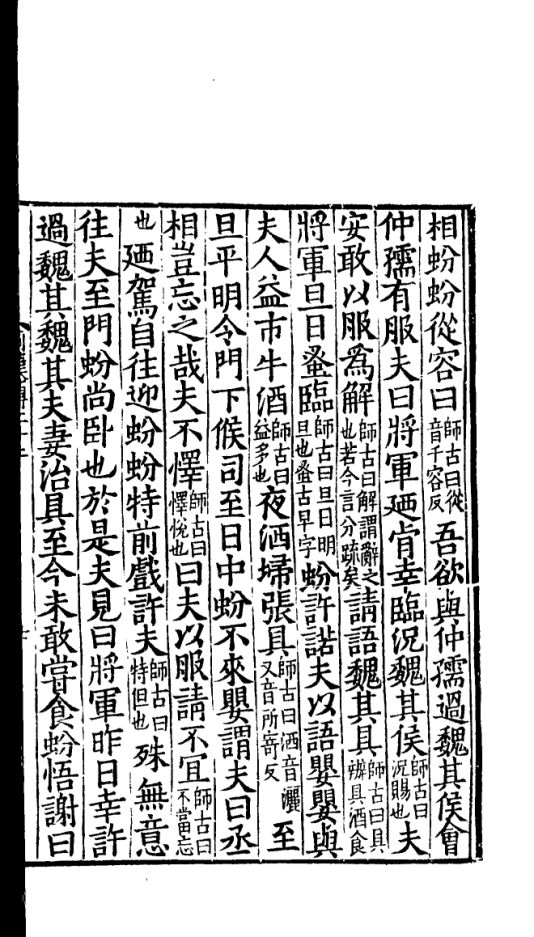 相蚡蚡從容曰師古曰從音千容反吾欲與仲孺過魏其侯會
仲孺有服夫曰將軍迺肯幸臨況魏其侯師古曰況賜也夫
安敢以服為解師古曰解謂辭之也若今言分疏矣請語魏其具師古曰具辦具酒食
將軍旦日蚤臨師古曰旦日明旦也蚤古早字蚡許諾夫以語嬰嬰與
夫人益巿牛酒師古曰益多也夜洒埽張具師古曰洒音灑又音所寄反至
旦平明令門下候司至日中蚡不來嬰謂夫曰丞
相豈忘之哉夫不懌師古曰懌悅也曰夫以服請不宜師古曰不當忘
也迺駕自往迎蚡蚡特前戲許夫師古曰特但也殊無意
往夫至門蚡尚卧也於是夫見曰將軍昨日幸許
過魏其魏其夫妻治具至今未敢嘗食蚡悟謝曰